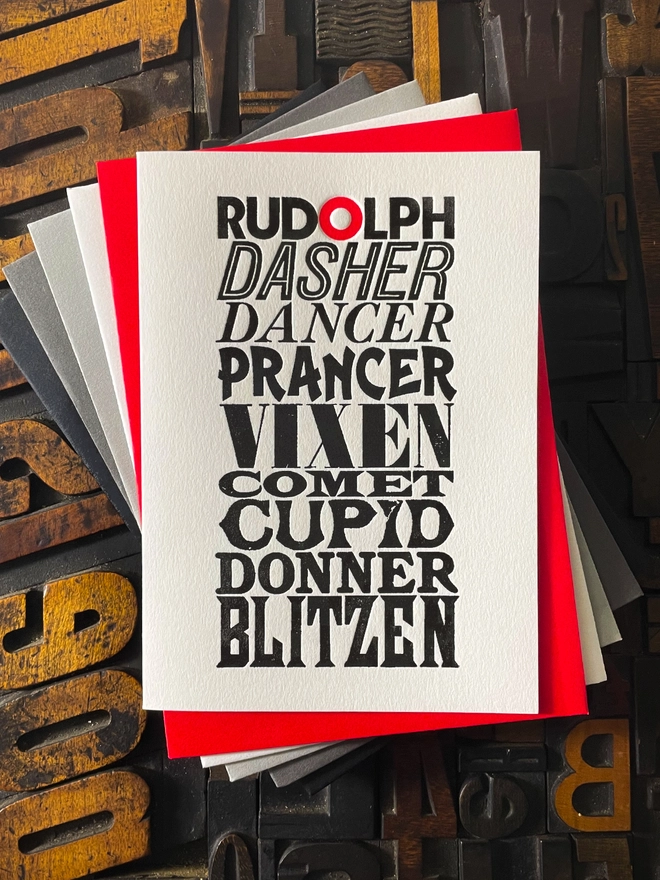 RUDOLPH
DASHER
DANCER
PRANCER
VIXEN
COMET
CUPID
DONNER
BLITZEN